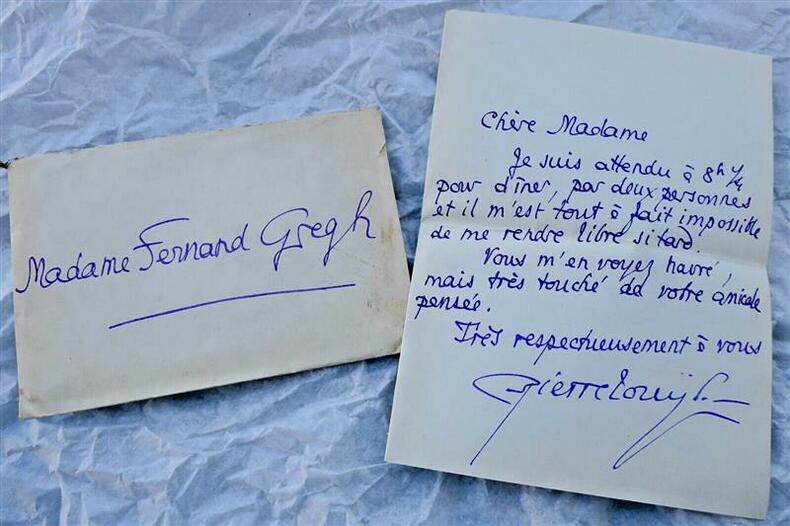 Madame Fernand Gregh
Chère Madame
Je suis attendu à 8h ¼
pour dîner, par deux personnes
et il m'est tout à fait impossible
de me rendre libre si tard.
Vous m'en voyez navré,
mais très touché de votre amicale
pensée.
Très respectueusement à vous
Pierre Louÿs